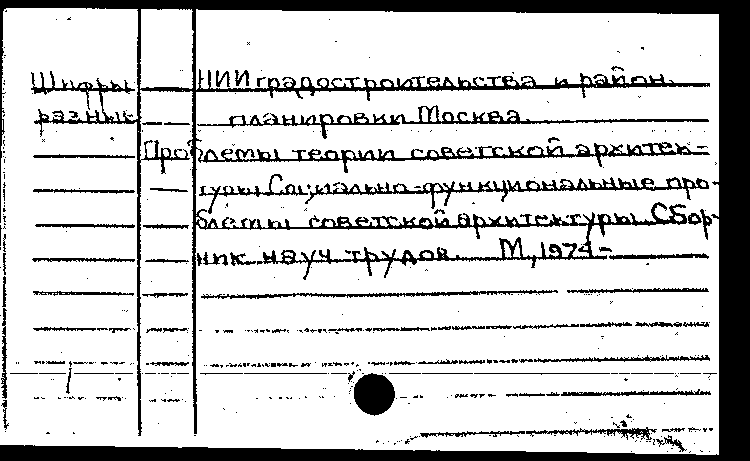 Шифры НИИ градостроительства и район.
разные планировки Москва.
Проблемы теории советской архитек-
туры Социально-функциональные про-
блемы советской архитектуры. Сбор-
ник науч трудов. М, 1974-